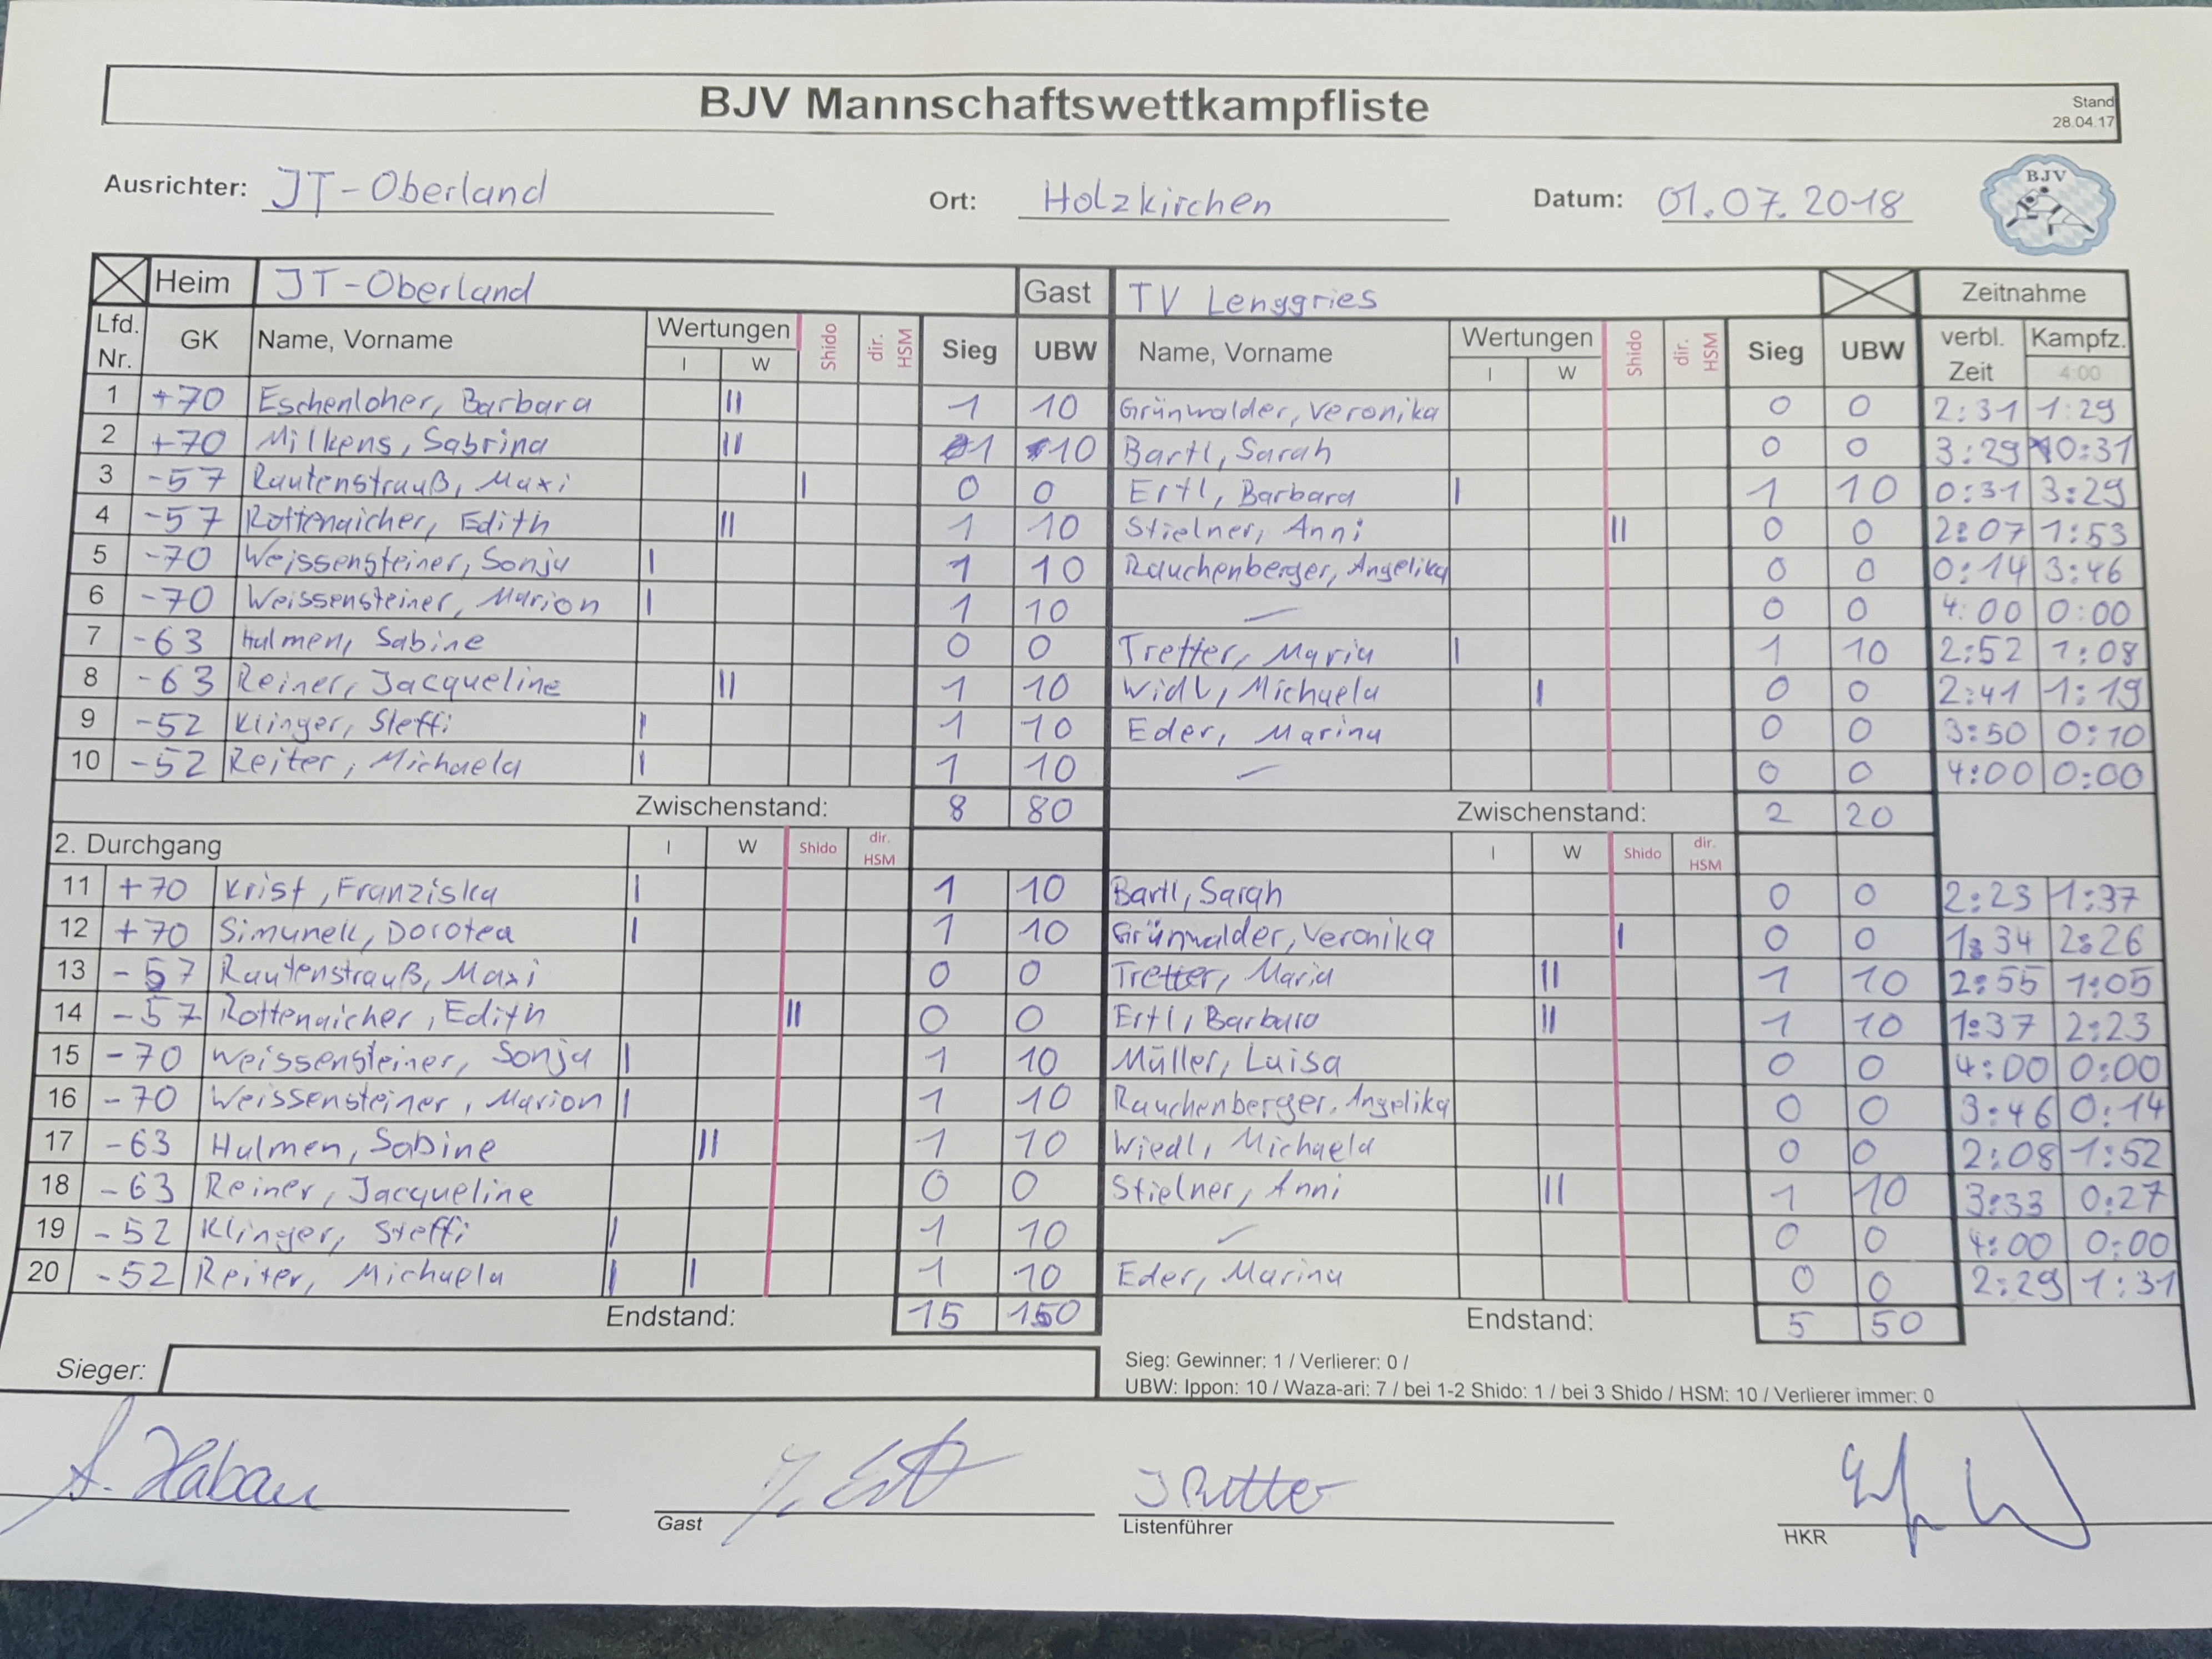 BJV Mannschaftswettkampfliste
Stand
28.04.17
Ausrichter: JT-Oberland Ort: Holzkirchen Datum: 01.07.2018
BJV
Heim JT-Oberland Gast TV Lenggries Zeitnahme
Lfd. Nr. GK Name, Vorname Wertungen I W Shido dir. HSM Sieg UBW Name, Vorname Wertungen I W Shido dir. HSM Sieg UBW verbl. Zeit Kampfz. 4:00
1 +70 Eschenloher, Barbara II 1 10 Grünwalder, Veronika 0 0 2:31 1:29
2 +70 Milkens, Sabrina II 1 10 Bartl, Sarah 0 0 3:29 0:31
3 -57 Rautenstrauß, Maxi I 0 0 Ertl, Barbara I 1 10 0:31 3:29
4 -57 Rottenaicher, Edith II 1 10 Stielner, Anni II 0 0 2:07 1:53
5 -70 Weissensteiner, Sonja I 1 10 Rauchenberger, Angelika 0 0 0:14 3:46
6 -70 Weissensteiner, Marion I 1 10 — 0 0 4:00 0:00
7 -63 Halmen, Sabine 0 0 Tretter, Maria I 1 10 2:52 1:08
8 -63 Reiner, Jacqueline II 1 10 Widl, Michaela I 0 0 2:41 1:19
9 -52 Klinger, Steffi I 1 10 Eder, Marina 0 0 3:50 0:10
10 -52 Reiter, Michaela I 1 10 — 0 0 4:00 0:00
Zwischenstand: 8 80 Zwischenstand: 2 20
2. Durchgang I W Shido dir. HSM I W Shido dir. HSM
11 +70 Krist, Franziska I 1 10 Bartl, Sarah 0 0 2:23 1:37
12 +70 Simunek, Dorotea I 1 10 Grünwalder, Veronika I 0 0 1:34 2:26
13 -57 Rautenstrauß, Maxi 0 0 Tretter, Maria II 1 10 2:55 1:05
14 -57 Rottenaicher, Edith II 0 0 Ertl, Barbara II 1 10 1:37 2:23
15 -70 Weissensteiner, Sonja I 1 10 Müller, Luisa 0 0 4:00 0:00
16 -70 Weissensteiner, Marion I 1 10 Rauchenberger, Angelika 0 0 3:46 0:14
17 -63 Halmen, Sabine II 1 10 Wiedl, Michaela 0 0 2:08 1:52
18 -63 Reiner, Jacqueline 0 0 Stielner, Anni II 1 10 3:33 0:27
19 -52 Klinger, Steffi I 1 10 — 0 0 4:00 0:00
20 -52 Reiter, Michaela I I 1 10 Eder, Marina 0 0 2:29 1:31
Endstand: 15 150 Endstand: 5 50
Sieger:
Sieg: Gewinner: 1 / Verlierer: 0 /
UBW: Ippon: 10 / Waza-ari: 7 / bei 1-2 Shido: 1 / bei 3 Shido / HSM: 10 / Verlierer immer: 0
Gast Listenführer HKR